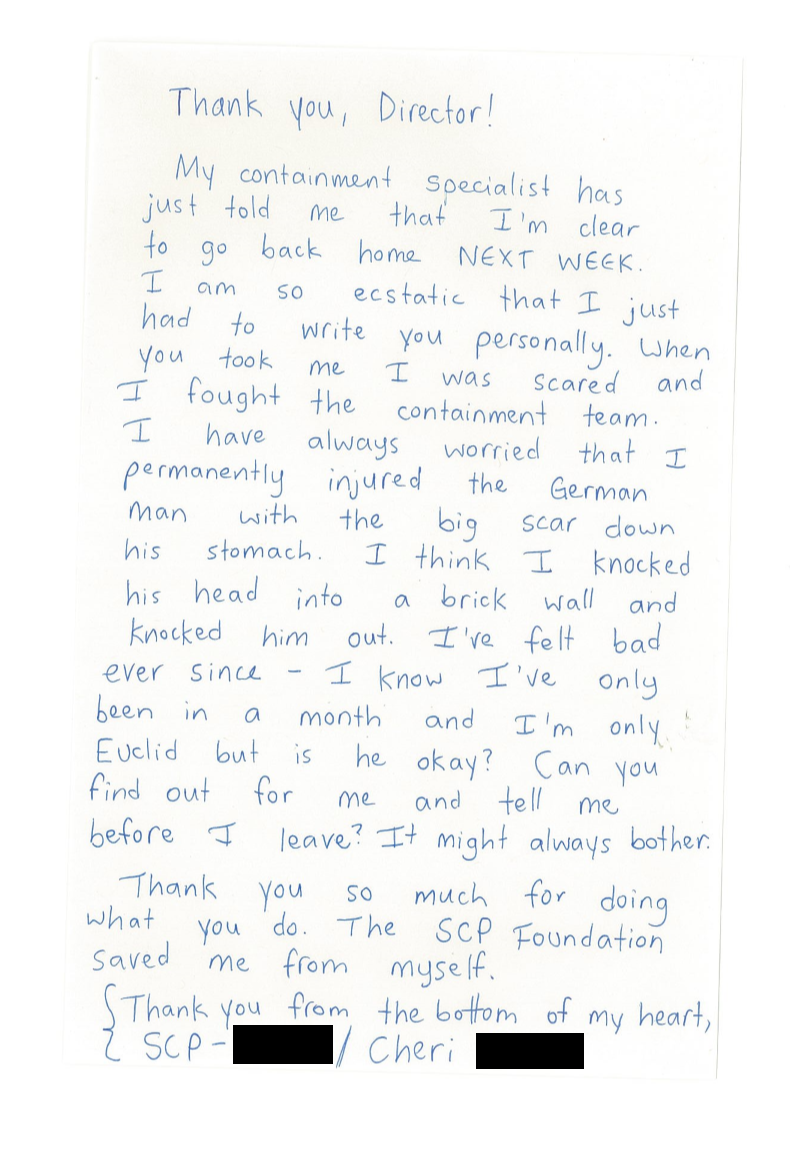 Thank you, Director!
My containment specialist has
just told me that I'm clear
to go back home NEXT WEEK.
I am so ecstatic that I just
had to write you personally. When
you took me I was scared and
I fought the containment team.
I have always worried that I
permanently injured the German
man with the big scar down
his stomach. I think I knocked
his head into a brick wall and
knocked him out. I've felt bad
ever since - I know I've only
been in a month and I'm only
Euclid but is he okay? Can you
find out for me and tell me
before I leave? It might always bother.
Thank you so much for doing
what you do. The SCP Foundation
saved me from myself.
Thank you from the bottom of my heart,
SCP- / Cheri